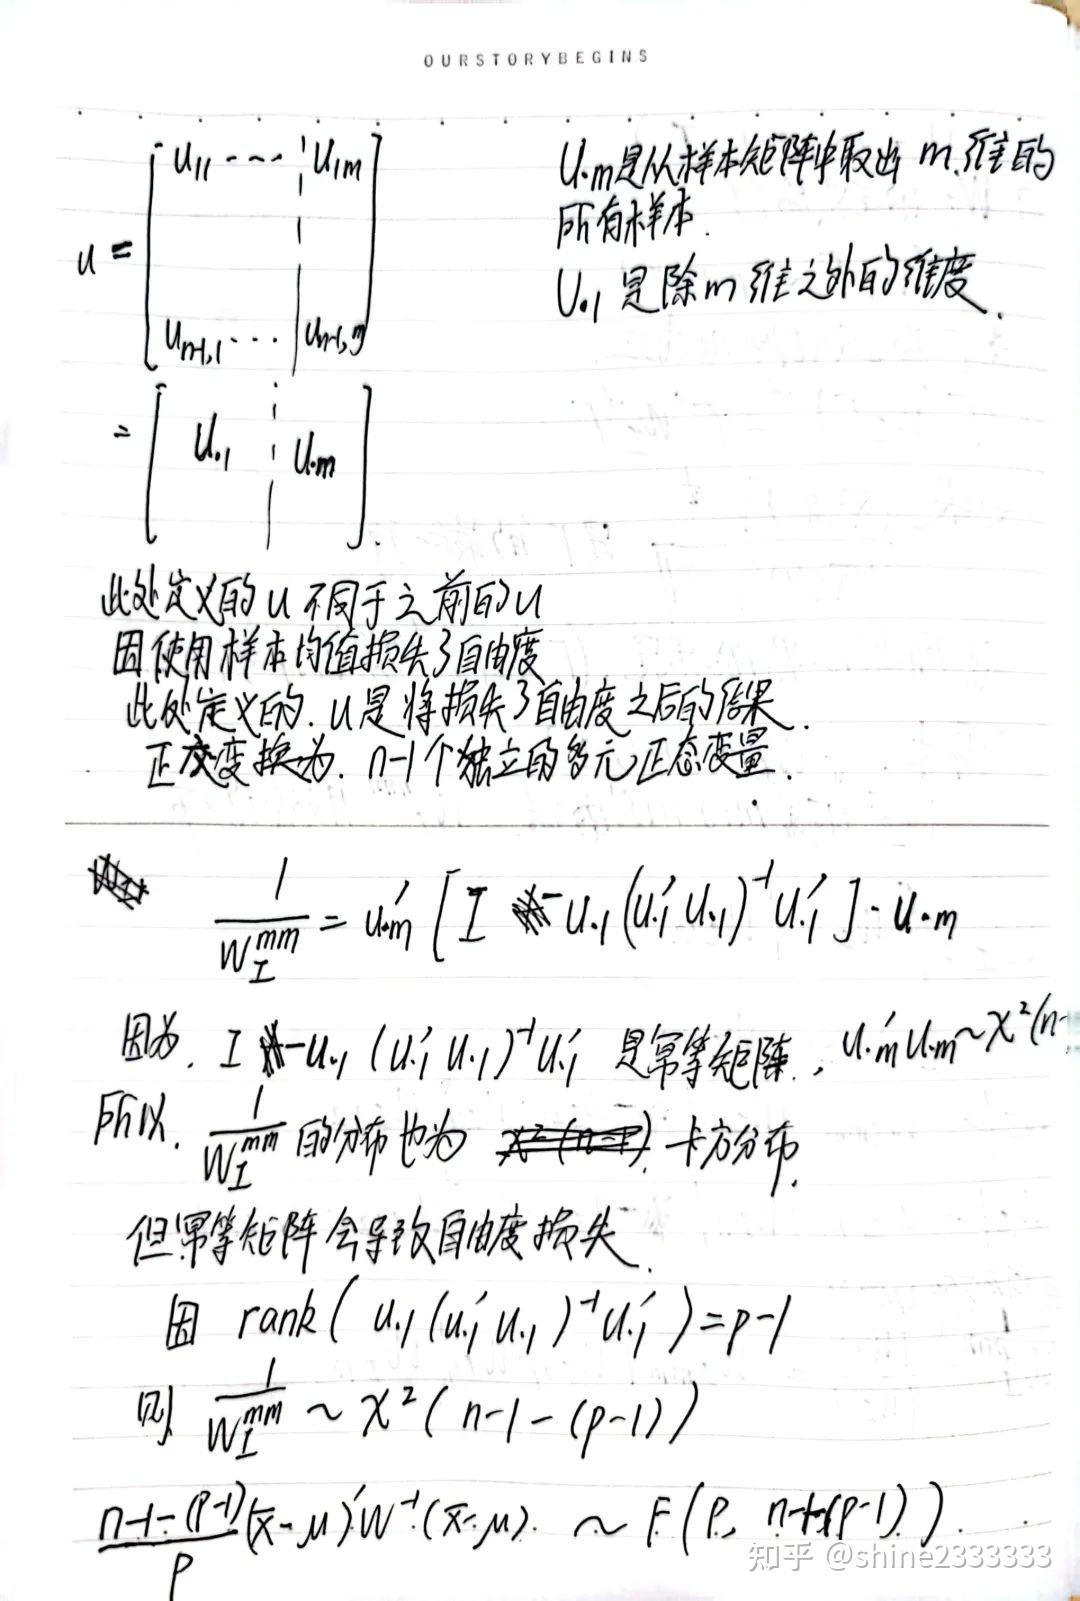 OURSTORYBEGINS
u = [ u11 ---- ¦ u1m
un-1,1 ... | un-1,m ]
= [ u.1 ¦ u.m ]
u.m是从样本矩阵中取出 m维的
所有样本.
u.1 是除m维之外的维度.
此处定义的u不同于之前的u
因使用样本均值损失了自由度
此处定义的.u是将损失了自由度之后的结果.
正交变换为.n-1个独立的多元正态变量.
1/W_I^{mm} = u.m′ [ I - u.1 (u.1′ u.1)^{-1} u.1′ ]· u.m
因为. I - u.1 (u.1′ u.1)^{-1} u.1′ 是幂等矩阵., u.m′ u.m ~ χ²(n-
所以. 1/W_I^{mm} 的分布也为 卡方分布.
但幂等矩阵会导致自由度损失.
因 rank( u.1 (u.1′ u.1)^{-1} u.1′ ) = p-1
则 1/W_I^{mm} ~ χ² ( n-1-(p-1))
n-1-(p-1)/p (x̄-μ)′W^{-1}(x̄-μ). ~ F(p, n-1-(p-1)).
知乎 @shine2333333